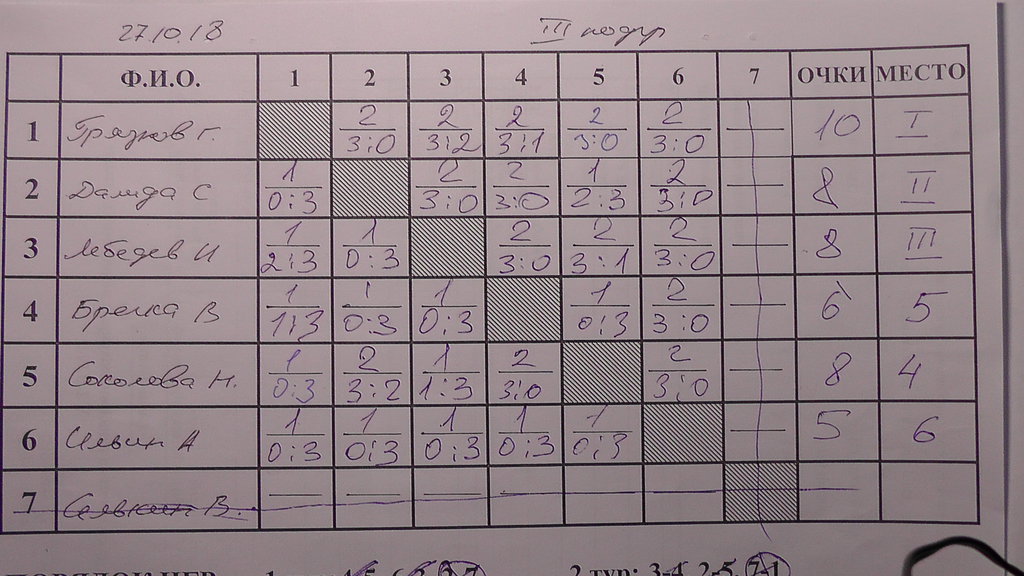 27.10.18 III подгр
Ф.И.О. 1 2 3 4 5 6 7 ОЧКИ МЕСТО
1 Грязнов Г. 2 3:0 2 3:2 2 3:1 2 3:0 2 3:0 — 10 I
2 Далида С 1 0:3 2 3:0 2 3:0 1 2:3 2 3:0 — 8 II
3 Лебедев И 1 2:3 1 0:3 2 3:0 2 3:1 2 3:0 — 8 III
4 В 1 1:3 1 0:3 1 0:3 1 0:3 2 3:0 — 6 5
5 Соколова Н. 1 0:3 2 3:2 1 1:3 2 3:0 2 3:0 — 8 4
6 Ильин А 1 0:3 1 0:3 1 0:3 1 0:3 1 0:3 — 5 6
7 В. — — — — — —
2 тур: 3-4, 2-5, 7-1